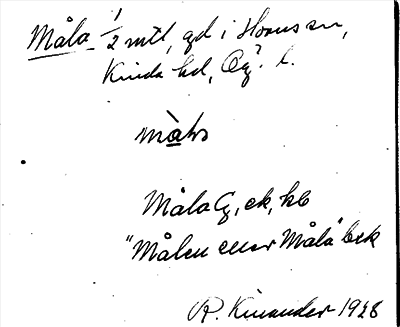 Måla 1/2 mtl, gd i Horns sn,
Kinda hd, Ög. l.
må̱la
Måla G, ek, kb
"Målen eller Måla" bek
R. Kinander 1928